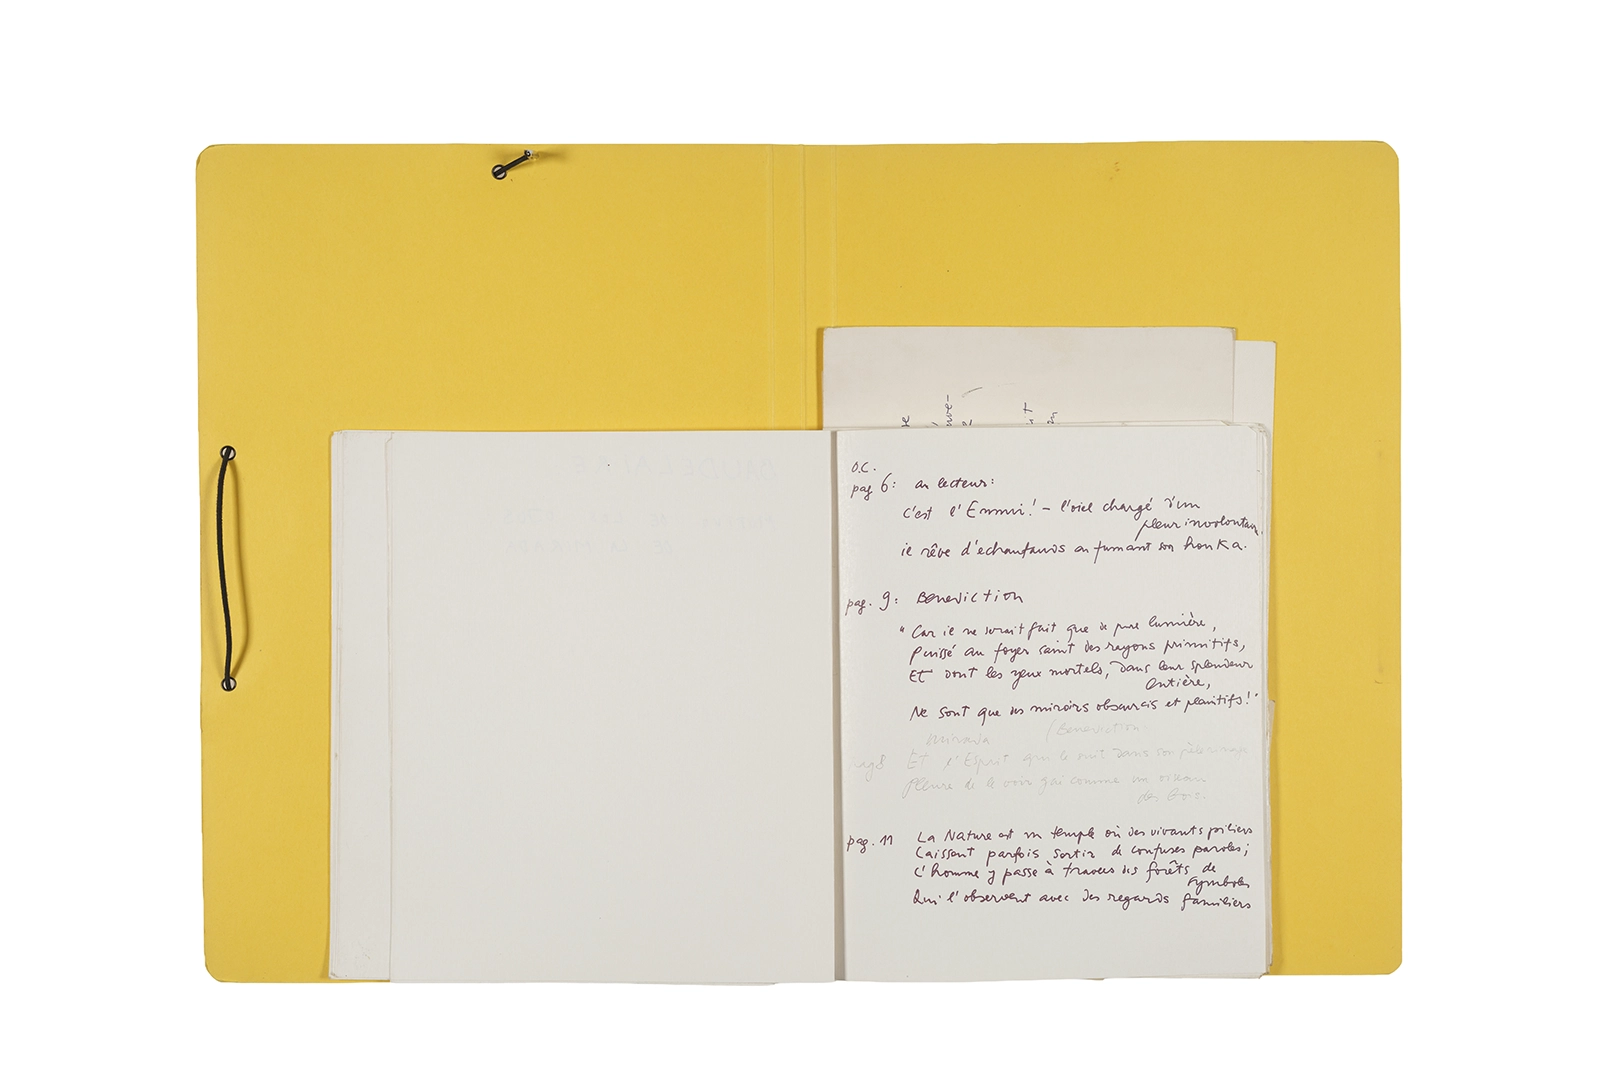 O.C.
pag 6: au lecteur:
c'est l'Ennui! – l'oiel chargé d'un
pleur involontair
il rêve d'echaufauds en fumant son houka.
pag. 9: Benediction
"Car il ne serait fait que de pure lumière,
Puisé au foyer saint des rayons primitifs,
Et dont les yeux mortels, dans leur splendeur
entière,
Ne sont que des miroirs obscurcis et plaintifs!"
mirada (Benediction
pag 8 Et l'Esprit qui le suit dans son pèlerinage
Pleure de le voir gai comme un oiseau
des bois.
pag. 11 La Nature est un temple où des vivants piliers
Laissent parfois sortir de confuses paroles;
L'homme y passe à travers des forêts de
symboles
Qui l'observent avec des regards familiers